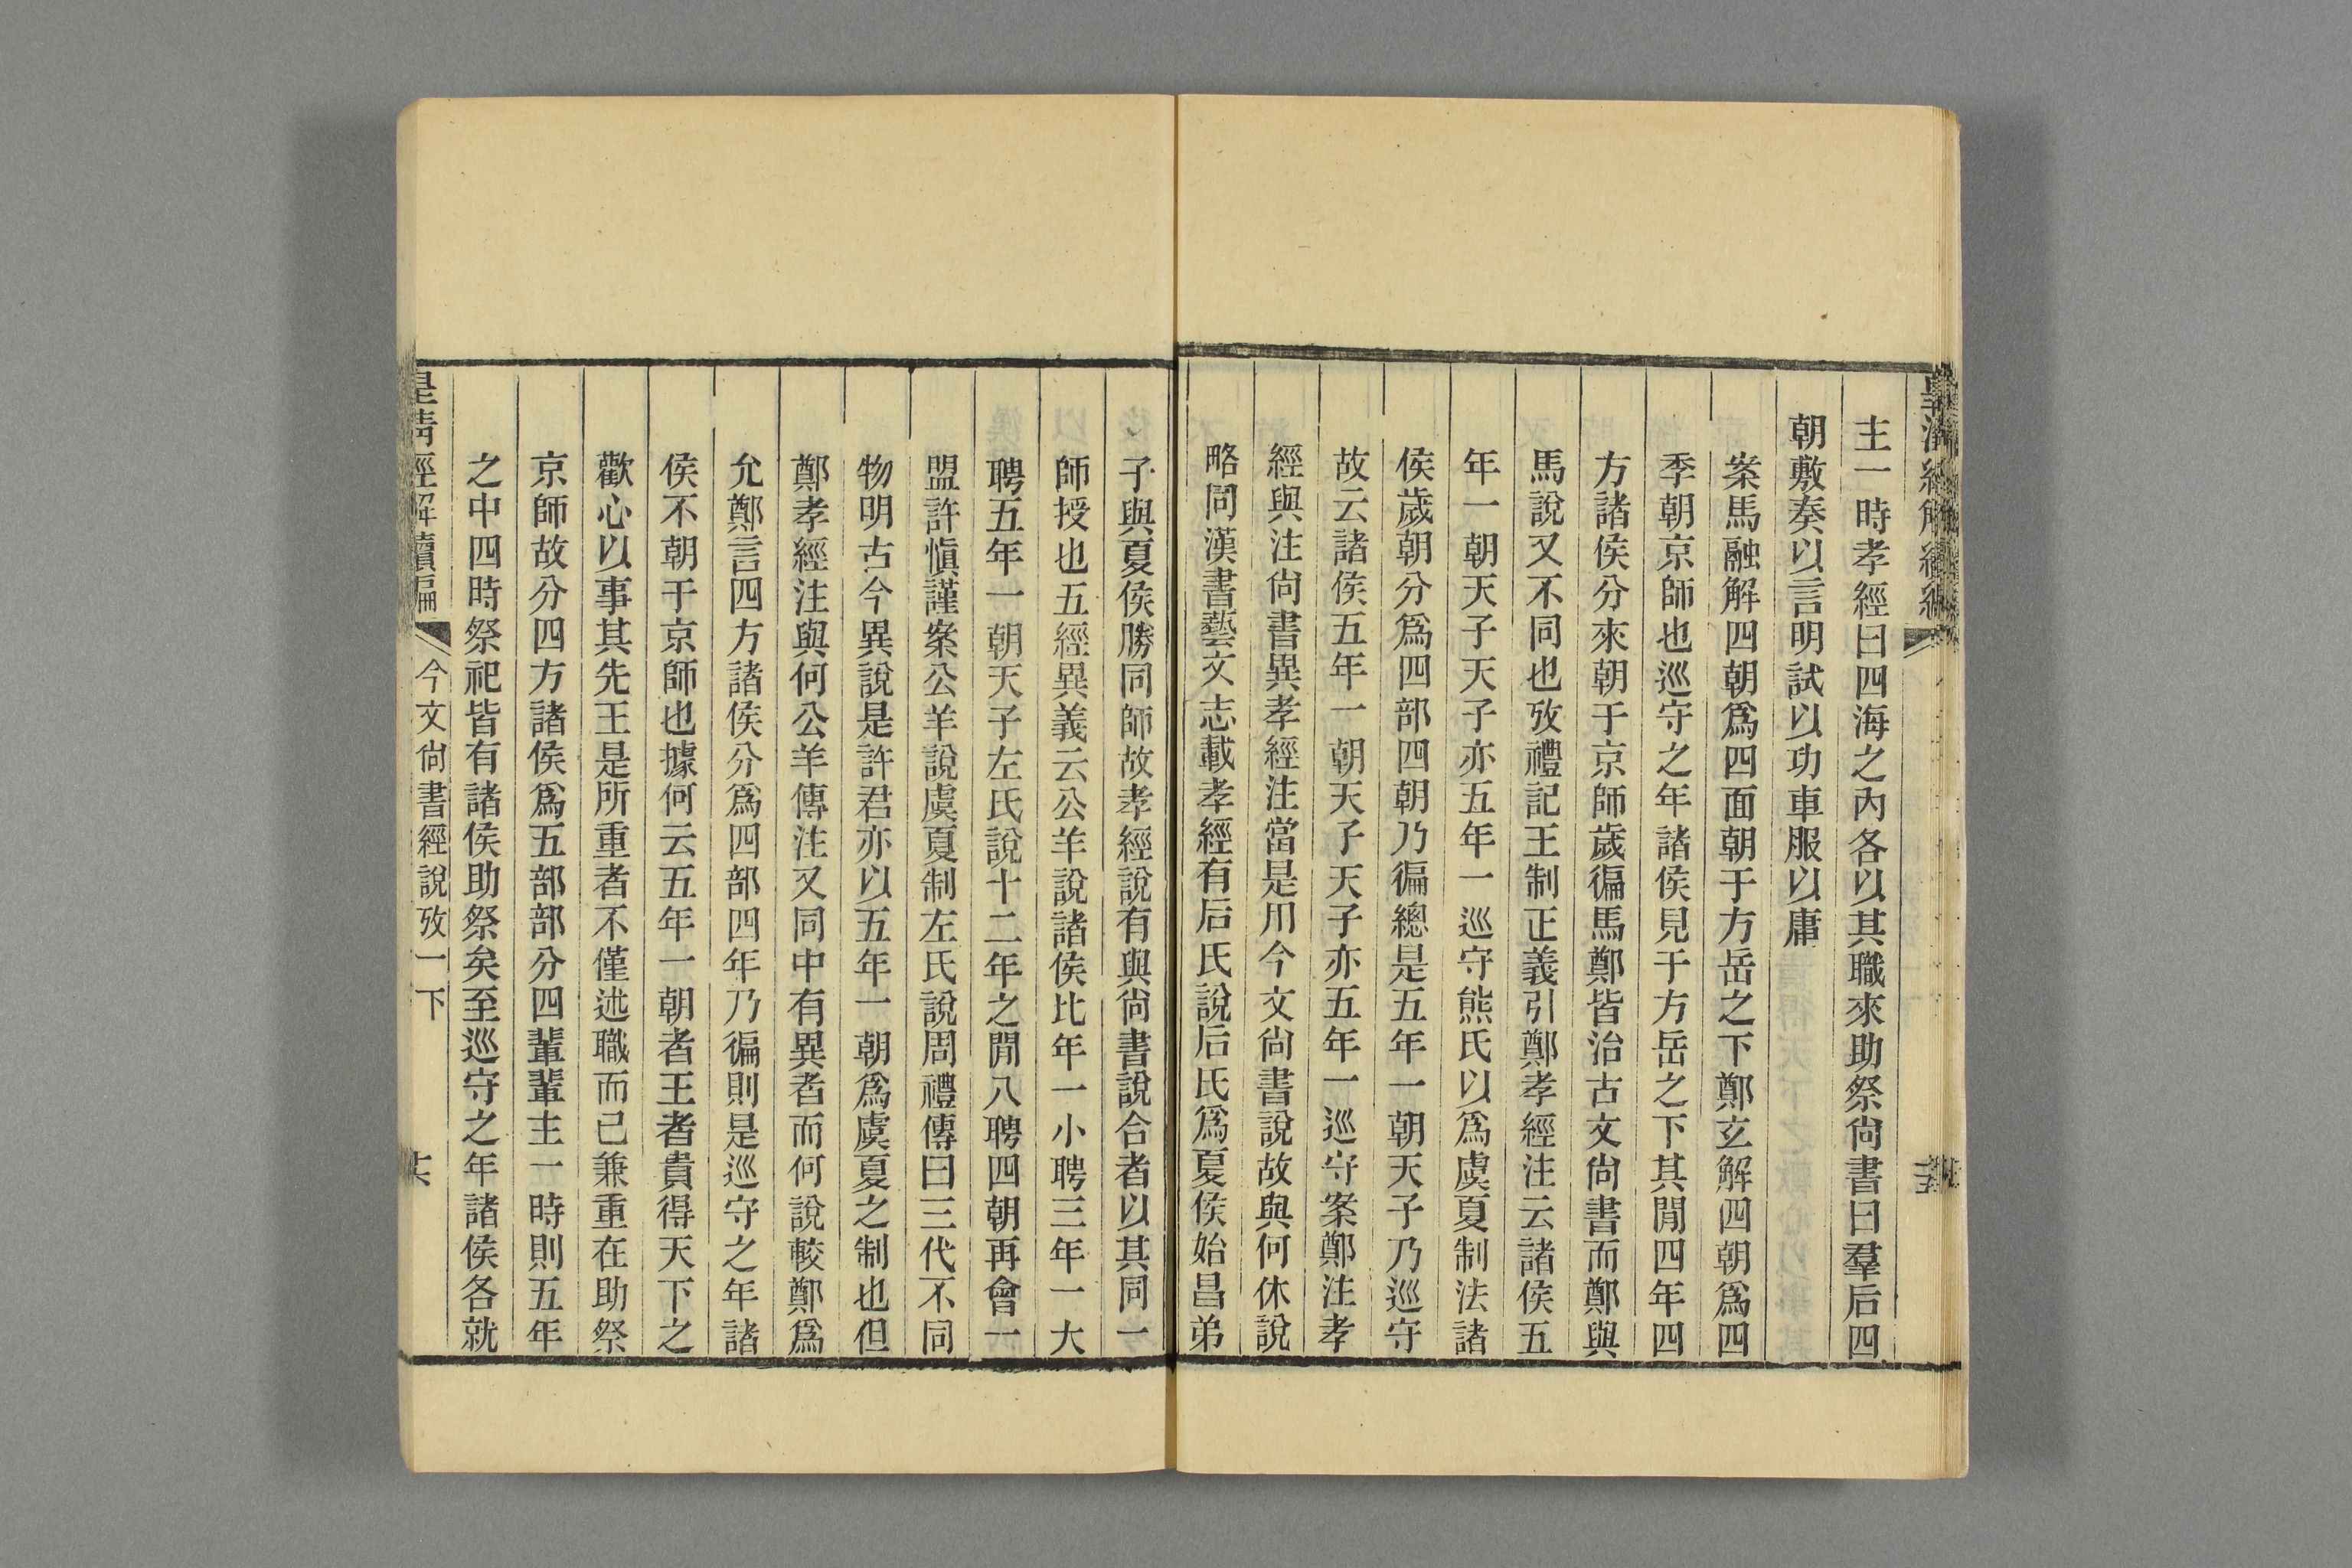 主一時孝經曰四海之內各以其職來助祭尙書曰羣后四
朝敷奏以言明試以功車服以庸
案馬融解四朝爲四面朝于方岳之下鄭玄解四朝爲四
季朝京師也巡守之年諸侯見于方岳之下其閒四年四
方諸侯分來朝于京師歲徧馬鄭皆治古文尙書而鄭與
馬說又不同也攷禮記王制正義引鄭孝經注云諸侯五
年一朝天子天子亦五年一巡守熊氏以爲虞夏制法諸
侯歲朝分爲四部四朝乃徧總是五年一朝天子乃巡守
故云諸侯五年一朝天子天子亦五年一巡守案鄭注孝
經與注尙書異孝經注當是用今文尙書說故與何休說
略同漢書藝文志載孝經有后氏說后氏爲夏侯始昌弟
子與夏侯勝同師故孝經說有與尙書說合者以其同一
師授也五經異義云公羊說諸侯比年一小聘三年一大
聘五年一朝天子左氏說十二年之閒八聘四朝再會一
盟許愼謹案公羊說虞夏制左氏說周禮傳曰三代不同
物明古今異說是許君亦以五年一朝爲虞夏之制也但
鄭孝經注與何公羊傳注又同中有異者而何說較鄭爲
允鄭言四方諸侯分爲四部四年乃徧則是巡守之年諸
侯不朝于京師也據何云五年一朝者王者貴得天下之
歡心以事其先王是所重者不僅述職而已兼重在助祭
京師故分四方諸侯爲五部部分四輩輩主一時則五年
之中四時祭祀皆有諸侯助祭矣至巡守之年諸侯各就
皇清經解續編 今文尙書經說攷一下